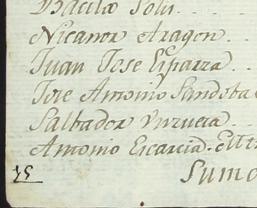 Solis
Nicanor Aragon
Juan Jose Esparza
Jose Antonio Sandoba
Salbador Unzueta
Antonio Escarcia
Suma
15